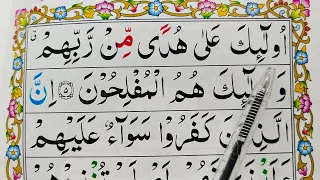 اُولٰٓئِكَ عَلٰى هُدًى مِّنْ رَّبِّهِمْ
وَ اُولٰٓئِكَ هُمُ الْمُفْلِحُوْنَ ۝٥ اِنَّ
الَّذِيْنَ كَفَرُوْا سَوَآءٌ عَلَيْهِمْ